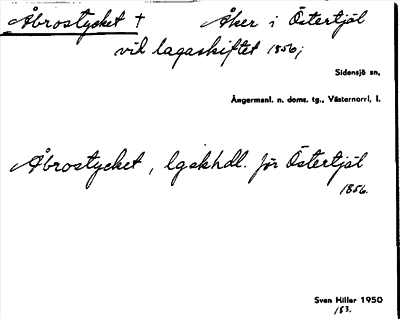 Åbrostycket † Åker i Östertjäl
vid lagaskiftet 1856;
Sidensjö sn,
Ångermanl. n. doms. tg., Västernorrl, l.
Åbrostycket, lgskhdl. för Östertjäl
1856.
Sven Hiller 1950
183.